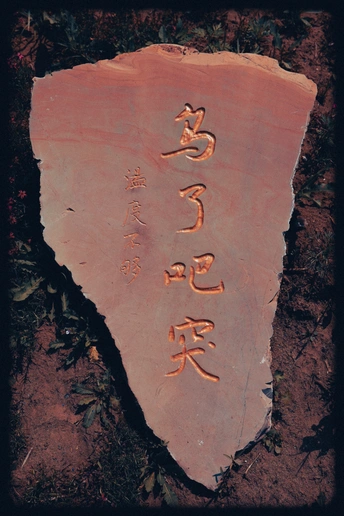 乌了吧突
温度不够